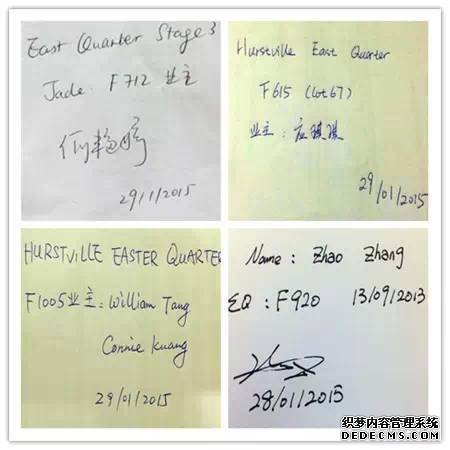 East Quarter Stage 3
Jade. F712 业主
29/1/2015
Hurstville East Quarter
F615 (lot 67)
业主:
29/01/2015
HURSTVILLE EASTER QUARTER
F1005业主: William Tang
Connie Kuang
29/01/2015
Name: Zhao Zhang
EQ: F920 13/09/2013
28/01/2015
织梦内容管理系统
DEDECMS.COM